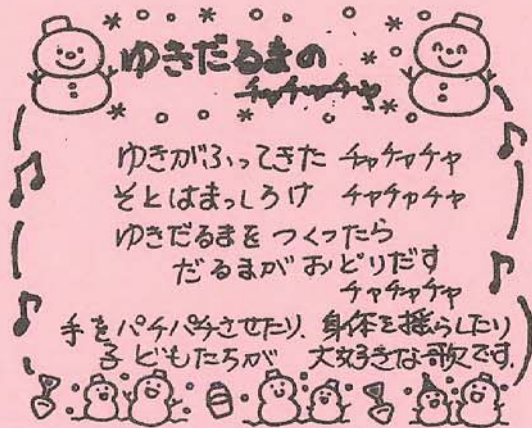 ゆきだるまの
チャチャチャ
ゆきがふってきた チャチャチャ
そとはまっしろけ チャチャチャ
ゆきだるまを つくったら
だるまが おどりだす
チャチャチャ
手をパチパチさせたり、身体を揺らしたり
子どもたちが 大好きな歌です。